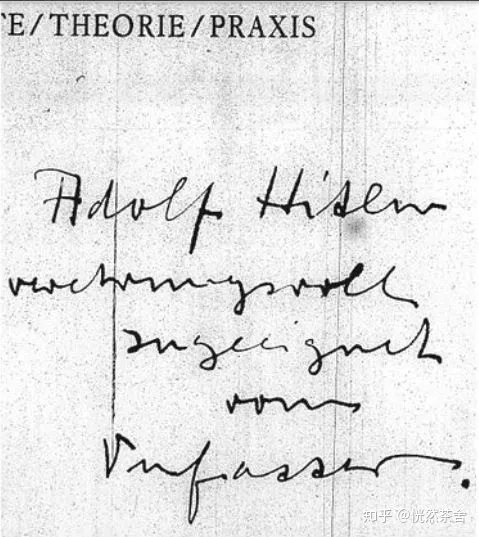 E/THEORIE/PRAXIS
Adolf Hitler
verehrungsvoll
zugeeignet
vom
Verfasser.
知乎 @恍然茶舍